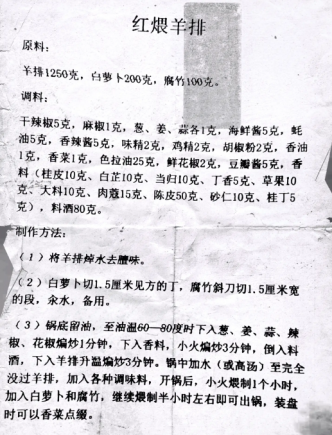 红煨羊排
原料：
羊排1250克，白萝卜200克，腐竹100克。
调料：
干辣椒5克，麻椒1克，葱、姜、蒜各1克，海鲜酱5克，蚝
油5克，香辣酱5克，味精2克，鸡精2克，胡椒粉2克，香油
1克，香菜1克，色拉油25克，鲜花椒2克，豆瓣酱5克，香
料（桂皮10克、白芷10克、当归10克、丁香5克、草果10
克、大料10克、肉蔻15克、陈皮50克、砂仁10克、桂丁5
克），料酒80克。
制作方法：
（1）将羊排焯水去膻味。
（2）白萝卜切1.5厘米见方的丁，腐竹斜刀切1.5厘米宽
的段，汆水，备用。
（3）锅底留油，至油温60—80度时下入葱、姜、蒜、辣
椒、花椒煸炒1分钟，下入香料，小火煸炒3分钟，倒入料
酒，下入羊排升温煸炒3分钟。锅中加水（或高汤）至完全
没过羊排，加入各种调味料，开锅后，小火煨制1个小时，
加入白萝卜和腐竹，继续煨制半小时左右即可出锅，装盘
时可以香菜点缀。